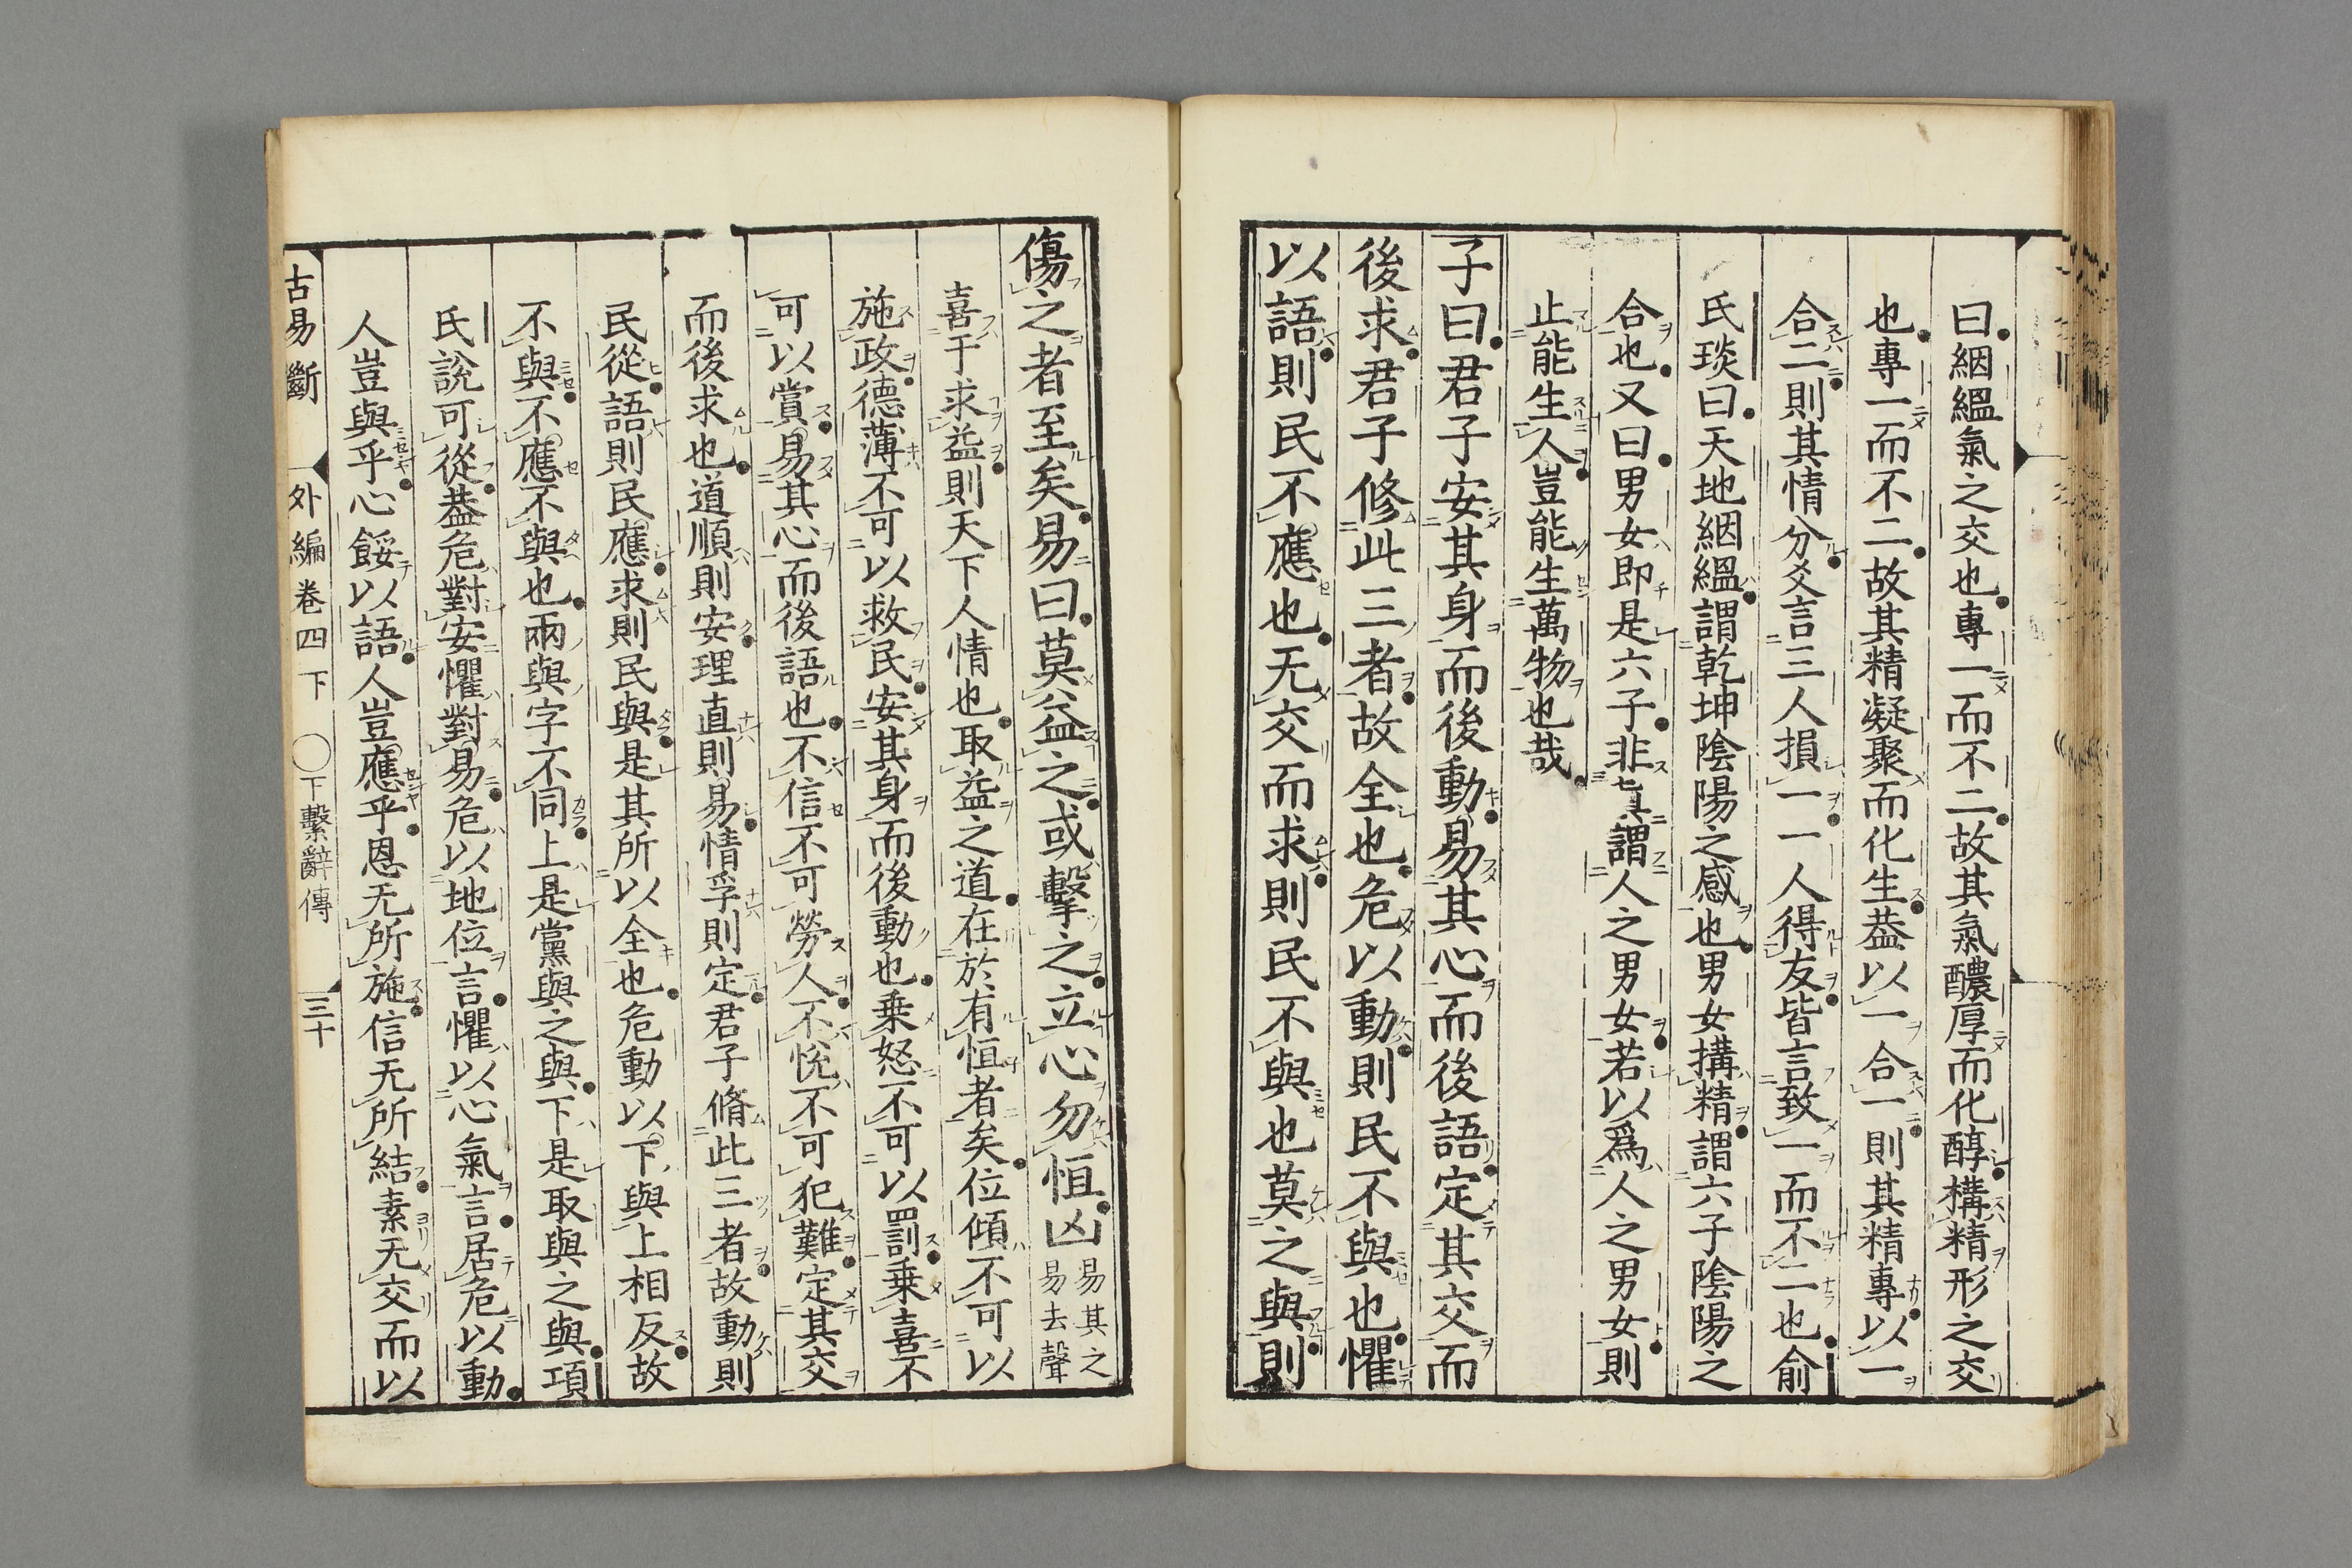 曰絪緼氣之交也專一而不二故其氣醲厚而化醇構精形之交
也專一而不二故其精凝聚而化生蓋以一合一則其精專以一
合二則其情分爻言三人損一一人得友皆言致一而不二也俞
氏琰曰天地絪緼謂乾坤陰陽之感也男女搆精謂六子陰陽之
合也又曰男女即是六子非眞謂人之男女若以爲人之男女則
止能生人豈能生萬物也哉
子曰君子安其身而後動易其心而後語定其交而
後求君子修此三者故全也危以動則民不與也懼
以語則民不應也无交而求則民不與也莫之與則
傷之者至矣易曰莫益之或擊之立心勿恒凶易其之易去聲
喜于求益則天下人情也取益之道在於有恒者矣位傾不可以
施政德薄不可以救民安其身而後動也乗怒不可以罰乗喜不
可以賞易其心而後語也不信不可勞人不悅不可犯難定其交
而後求也道順則安理直則易情孚則定君子脩此三者故動則
民從語則民應求則民與是其所以全也危動以下與上相反故
不與不應不與也兩與字不同上是黨與之與下是取與之與項
氏說可從蓋危對安懼對易危以地位言懼以心氣言居危以動
人豈與乎心餒以語人豈應乎恩无所施信无所結素无交而以
古易斷 外編卷四下 ○下繫辭傳 三十